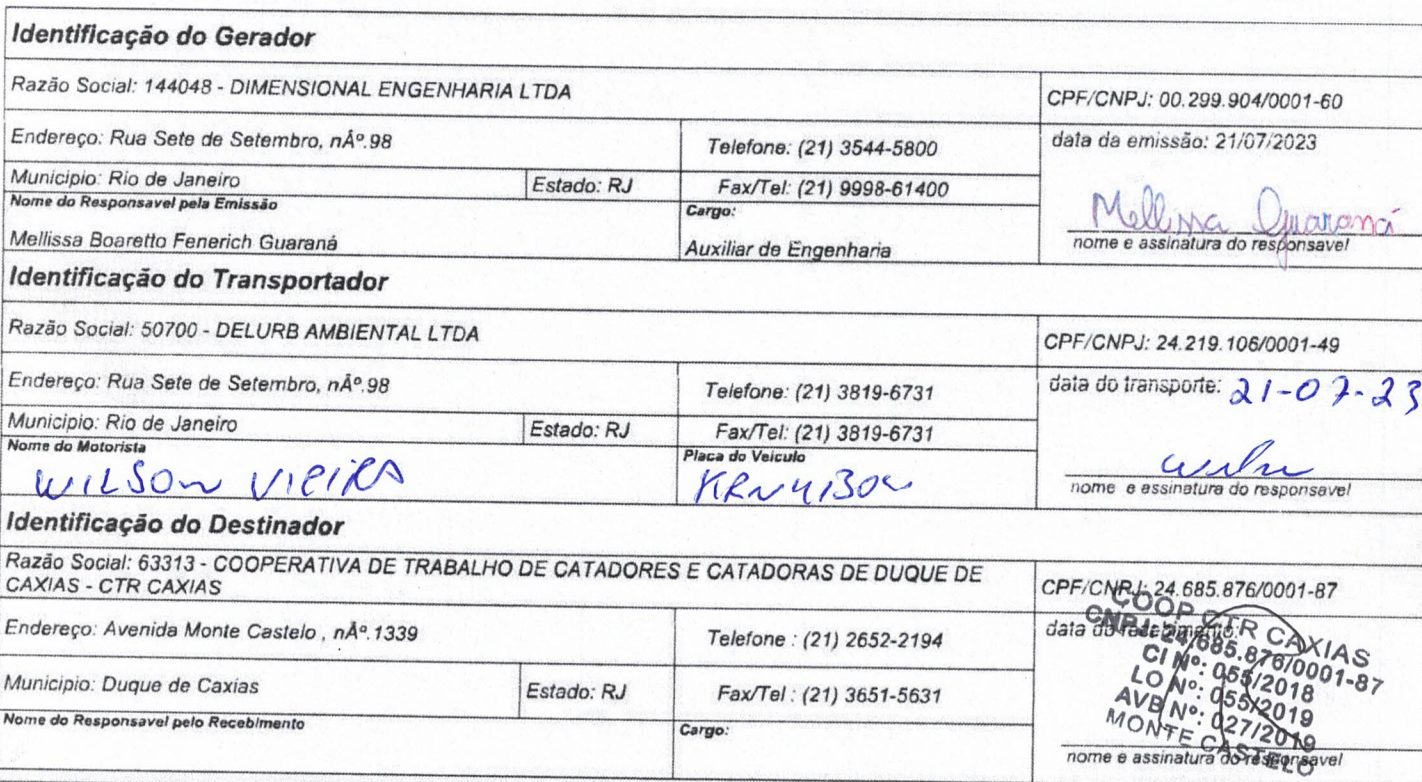 Identificação do Gerador
Razão Social: 144048 - DIMENSIONAL ENGENHARIA LTDA
CPF/CNPJ: 00.299.904/0001-60
Endereço: Rua Sete de Setembro, nÂº.98
Telefone: (21) 3544-5800
data da emissão: 21/07/2023
Municipio: Rio de Janeiro
Estado: RJ
Fax/Tel: (21) 9998-61400
Nome do Responsavel pela Emissão
Cargo:
Mellissa Boaretto Fenerich Guaraná
Auxiliar de Engenharia
Mellissa Guaraná
nome e assinatura do responsavel
Identificação do Transportador
Razão Social: 50700 - DELURB AMBIENTAL LTDA
CPF/CNPJ: 24.219.106/0001-49
Endereço: Rua Sete de Setembro, nÂº.98
Telefone: (21) 3819-6731
data do transporte: 21-07-23
Municipio: Rio de Janeiro
Estado: RJ
Fax/Tel: (21) 3819-6731
Nome do Motorista
Placa do Veiculo
WILSON VIEIRA
nome e assinatura do responsavel
Identificação do Destinador
Razão Social: 63313 - COOPERATIVA DE TRABALHO DE CATADORES E CATADORAS DE DUQUE DE
CAXIAS - CTR CAXIAS
CPF/CNPJ: 24.685.876/0001-87
Endereço: Avenida Monte Castelo , nÂº.1339
Telefone : (21) 2652-2194
data do recebimento:
Municipio: Duque de Caxias
Estado: RJ
Fax/Tel : (21) 3651-5631
Nome do Responsavel pelo Recebimento
Cargo:
COOP CTR CAXIAS
CNPJ: 24.685.876/0001-87
CI Nº: 055/2018
LO Nº: 055/2019
AVB Nº: 027/2019
MONTE CASTELO
nome e assinatura do responsavel